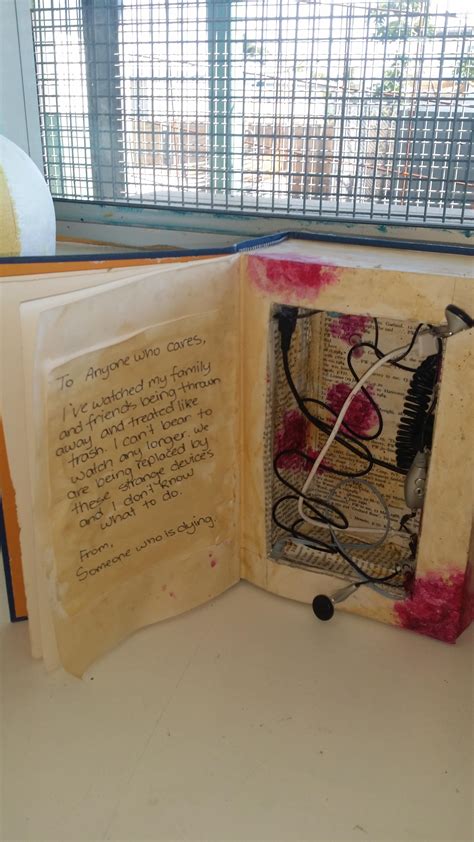 To Anyone who cares,
I've watched my family
and friends being thrown
away and treated like
trash. I can't bear to
watch any longer. We
are being replaced by
these strange devices
and I don't know
what to do.
From,
Someone who is dying.